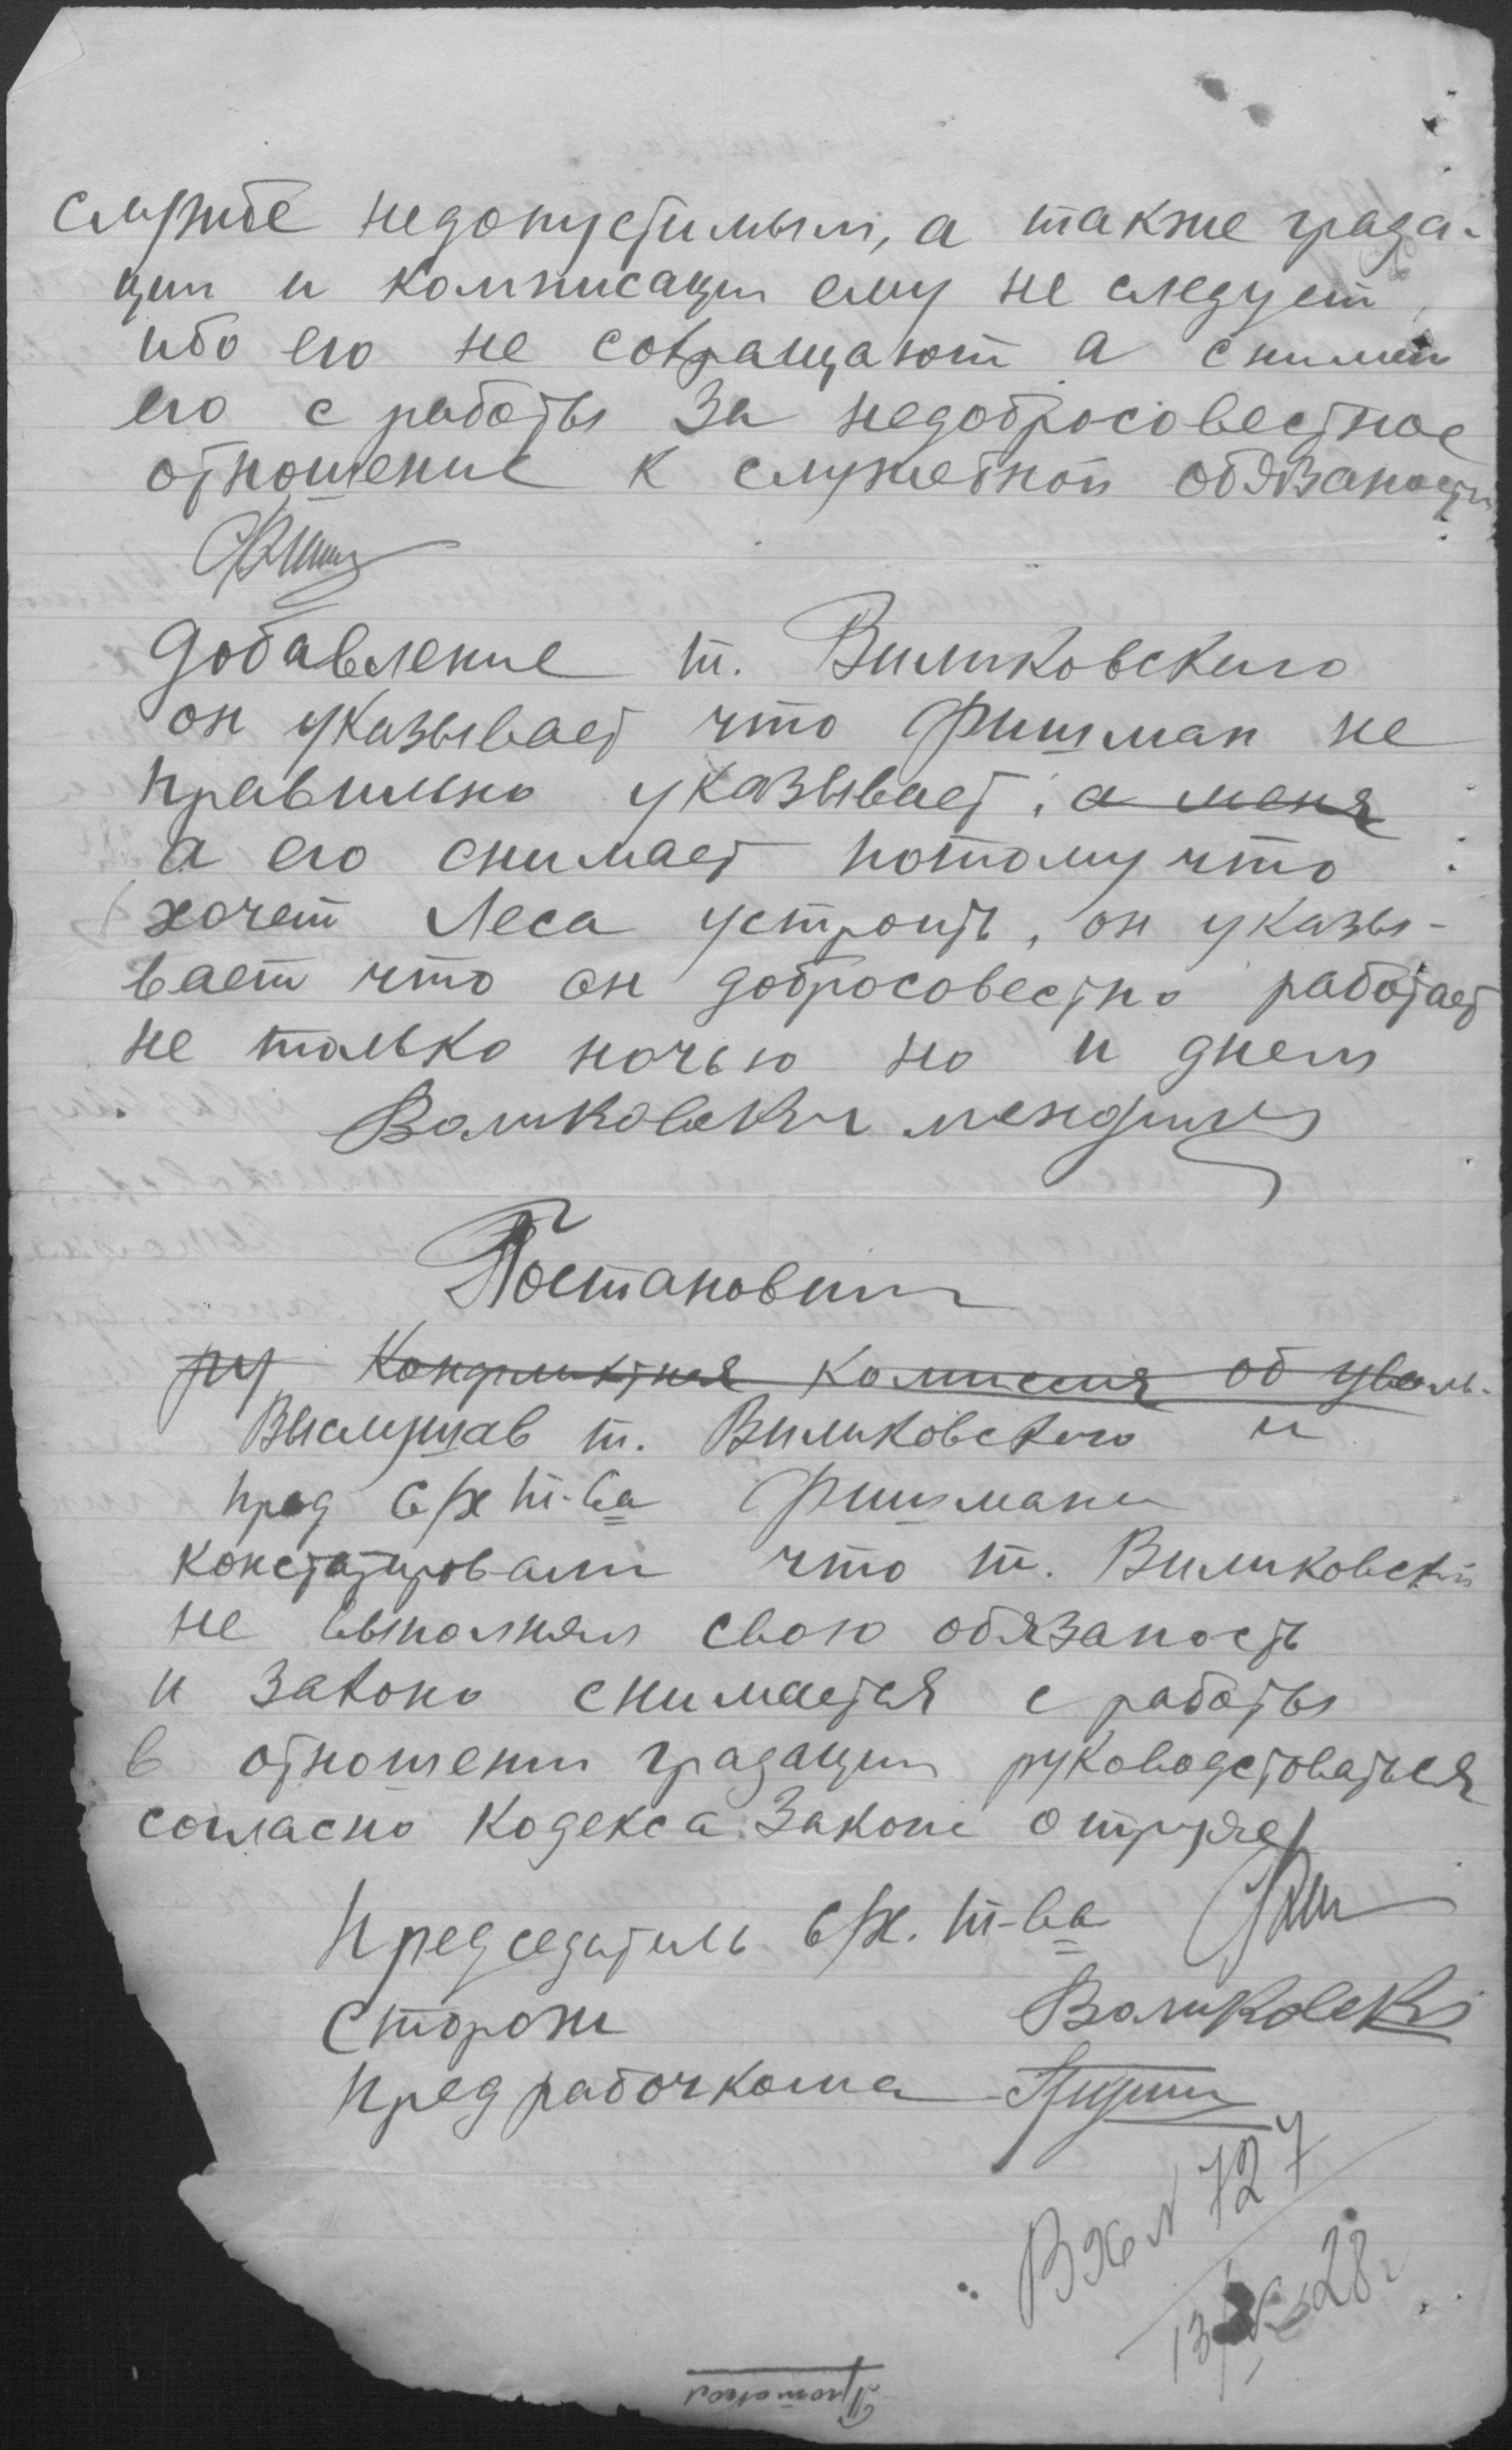 службе недопустимым, а также града-
ции и комписации ему не следует,
ибо его не сокращают а снимают
его с работы за недобросовестное
отношение к служебной обязаности
Добавление т. Вильковского
он указывает что Фишман не
правильно указывает, а меня
а его снимает потому что
хочет Леса устроить, он указы-
вает что он добросовестно работает
не только ночью но и днем
Постановили
ру Конфликтная комиссия об уволь-
Выслушав т. Вильковского и
пред с/х т-ва Фишмана
констатировали что т. Вильковский
не выполнял свою обязаность
и законо снимается с работы
в отношении градации руководстоваться
согласно Кодекса Законе о труде
Председатель с/х. т-ва
Сторож
Пред рабочкома
Вх № 727
28 г
Протокол